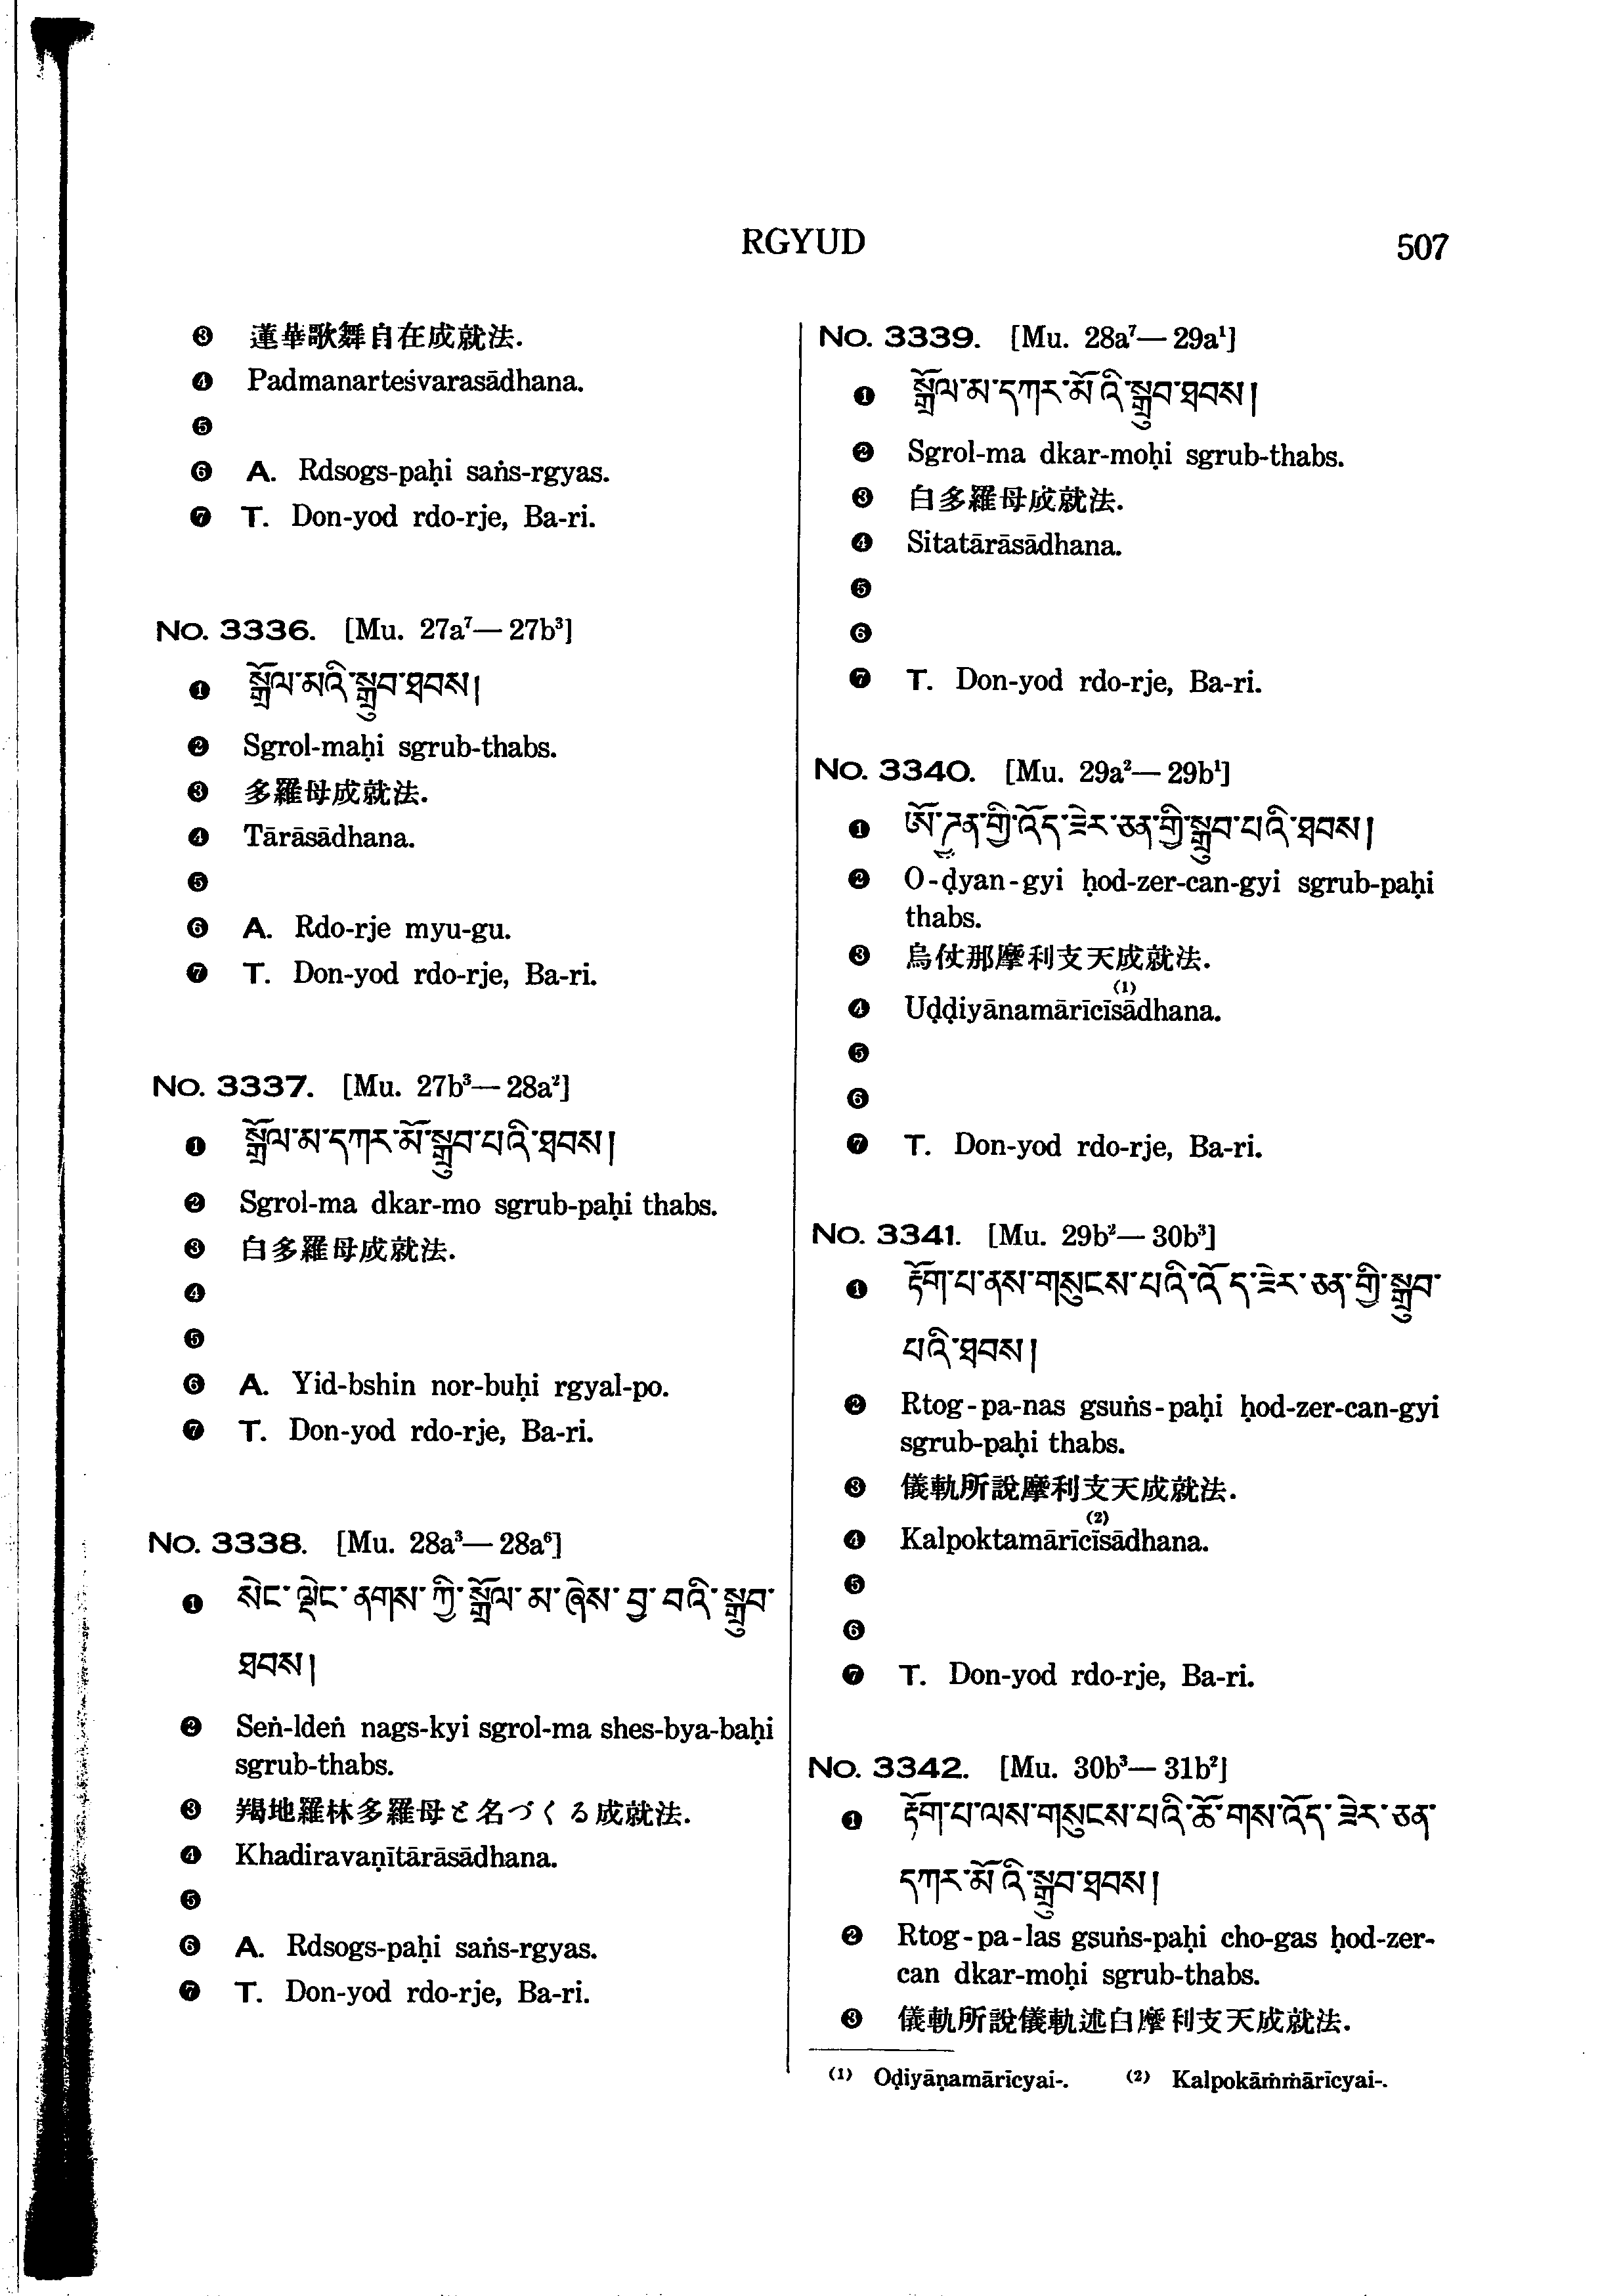 RGYUD
507
❸ 蓮華歌舞自在成就法.
❹ Padmanarteśvarasādhana.
❺
❻ A. Rdsogs-paḥi saṅs-rgyas.
❼ T. Don-yod rdo-rje, Ba-ri.
No. 3336. [Mu. 27a⁷— 27b³]
❶ སྒྲོལ་མའི་སྒྲུབ་ཐབས།
❷ Sgrol-maḥi sgrub-thabs.
❸ 多羅母成就法.
❹ Tārāsādhana.
❺
❻ A. Rdo-rje myu-gu.
❼ T. Don-yod rdo-rje, Ba-ri.
No. 3337. [Mu. 27b³— 28a²]
❶ སྒྲོལ་མ་དཀར་མོ་སྒྲུབ་པའི་ཐབས།
❷ Sgrol-ma dkar-mo sgrub-paḥi thabs.
❸ 白多羅母成就法.
❹
❺
❻ A. Yid-bshin nor-buḥi rgyal-po.
❼ T. Don-yod rdo-rje, Ba-ri.
No. 3338. [Mu. 28a³— 28a⁶]
❶ སེང་ལྡེང་ནགས་ཀྱི་སྒྲོལ་མ་ཞེས་བྱ་བའི་སྒྲུབ་
ཐབས།
❷ Seṅ-ldeṅ nags-kyi sgrol-ma shes-bya-baḥi
sgrub-thabs.
❸ 羯地羅林多羅母と名づくる成就法.
❹ Khadiravaṇītārāsādhana.
❺
❻ A. Rdsogs-paḥi saṅs-rgyas.
❼ T. Don-yod rdo-rje, Ba-ri.
No. 3339. [Mu. 28a⁷— 29a¹]
❶ སྒྲོལ་མ་དཀར་མོའི་སྒྲུབ་ཐབས།
❷ Sgrol-ma dkar-moḥi sgrub-thabs.
❸ 白多羅母成就法.
❹ Sitatārāsādhana.
❺
❻
❼ T. Don-yod rdo-rje, Ba-ri.
No. 3340. [Mu. 29a²— 29b¹]
❶ ཨོ་ཌྱན་གྱི་འོད་ཟེར་ཅན་གྱི་སྒྲུབ་པའི་ཐབས།
❷ O-ḍyan-gyi ḥod-zer-can-gyi sgrub-paḥi
thabs.
❸ 烏仗那摩利支天成就法.
❹ Uḍḍiyānamārīcīsādhana.⁽¹⁾
❺
❻
❼ T. Don-yod rdo-rje, Ba-ri.
No. 3341. [Mu. 29b²— 30b³]
❶ རྟོག་པ་ནས་གསུངས་པའི་འོད་ཟེར་ཅན་གྱི་སྒྲུབ་
པའི་ཐབས།
❷ Rtog-pa-nas gsuṅs-paḥi ḥod-zer-can-gyi
sgrub-paḥi thabs.
❸ 儀軌所說摩利支天成就法.
❹ Kalpoktamārīcīsādhana.⁽²⁾
❺
❻
❼ T. Don-yod rdo-rje, Ba-ri.
No. 3342. [Mu. 30b³— 31b²]
❶ རྟོག་པ་ལས་གསུངས་པའི་ཆོ་གས་འོད་ཟེར་ཅན་
དཀར་མོའི་སྒྲུབ་ཐབས།
❷ Rtog-pa-las gsuṅs-paḥi cho-gas ḥod-zer-
can dkar-moḥi sgrub-thabs.
❸ 儀軌所說儀軌述白摩利支天成就法.
⁽¹⁾ Oḍiyāṇamārīcyai-. ⁽²⁾ Kalpokāṁṁārīcyai-.